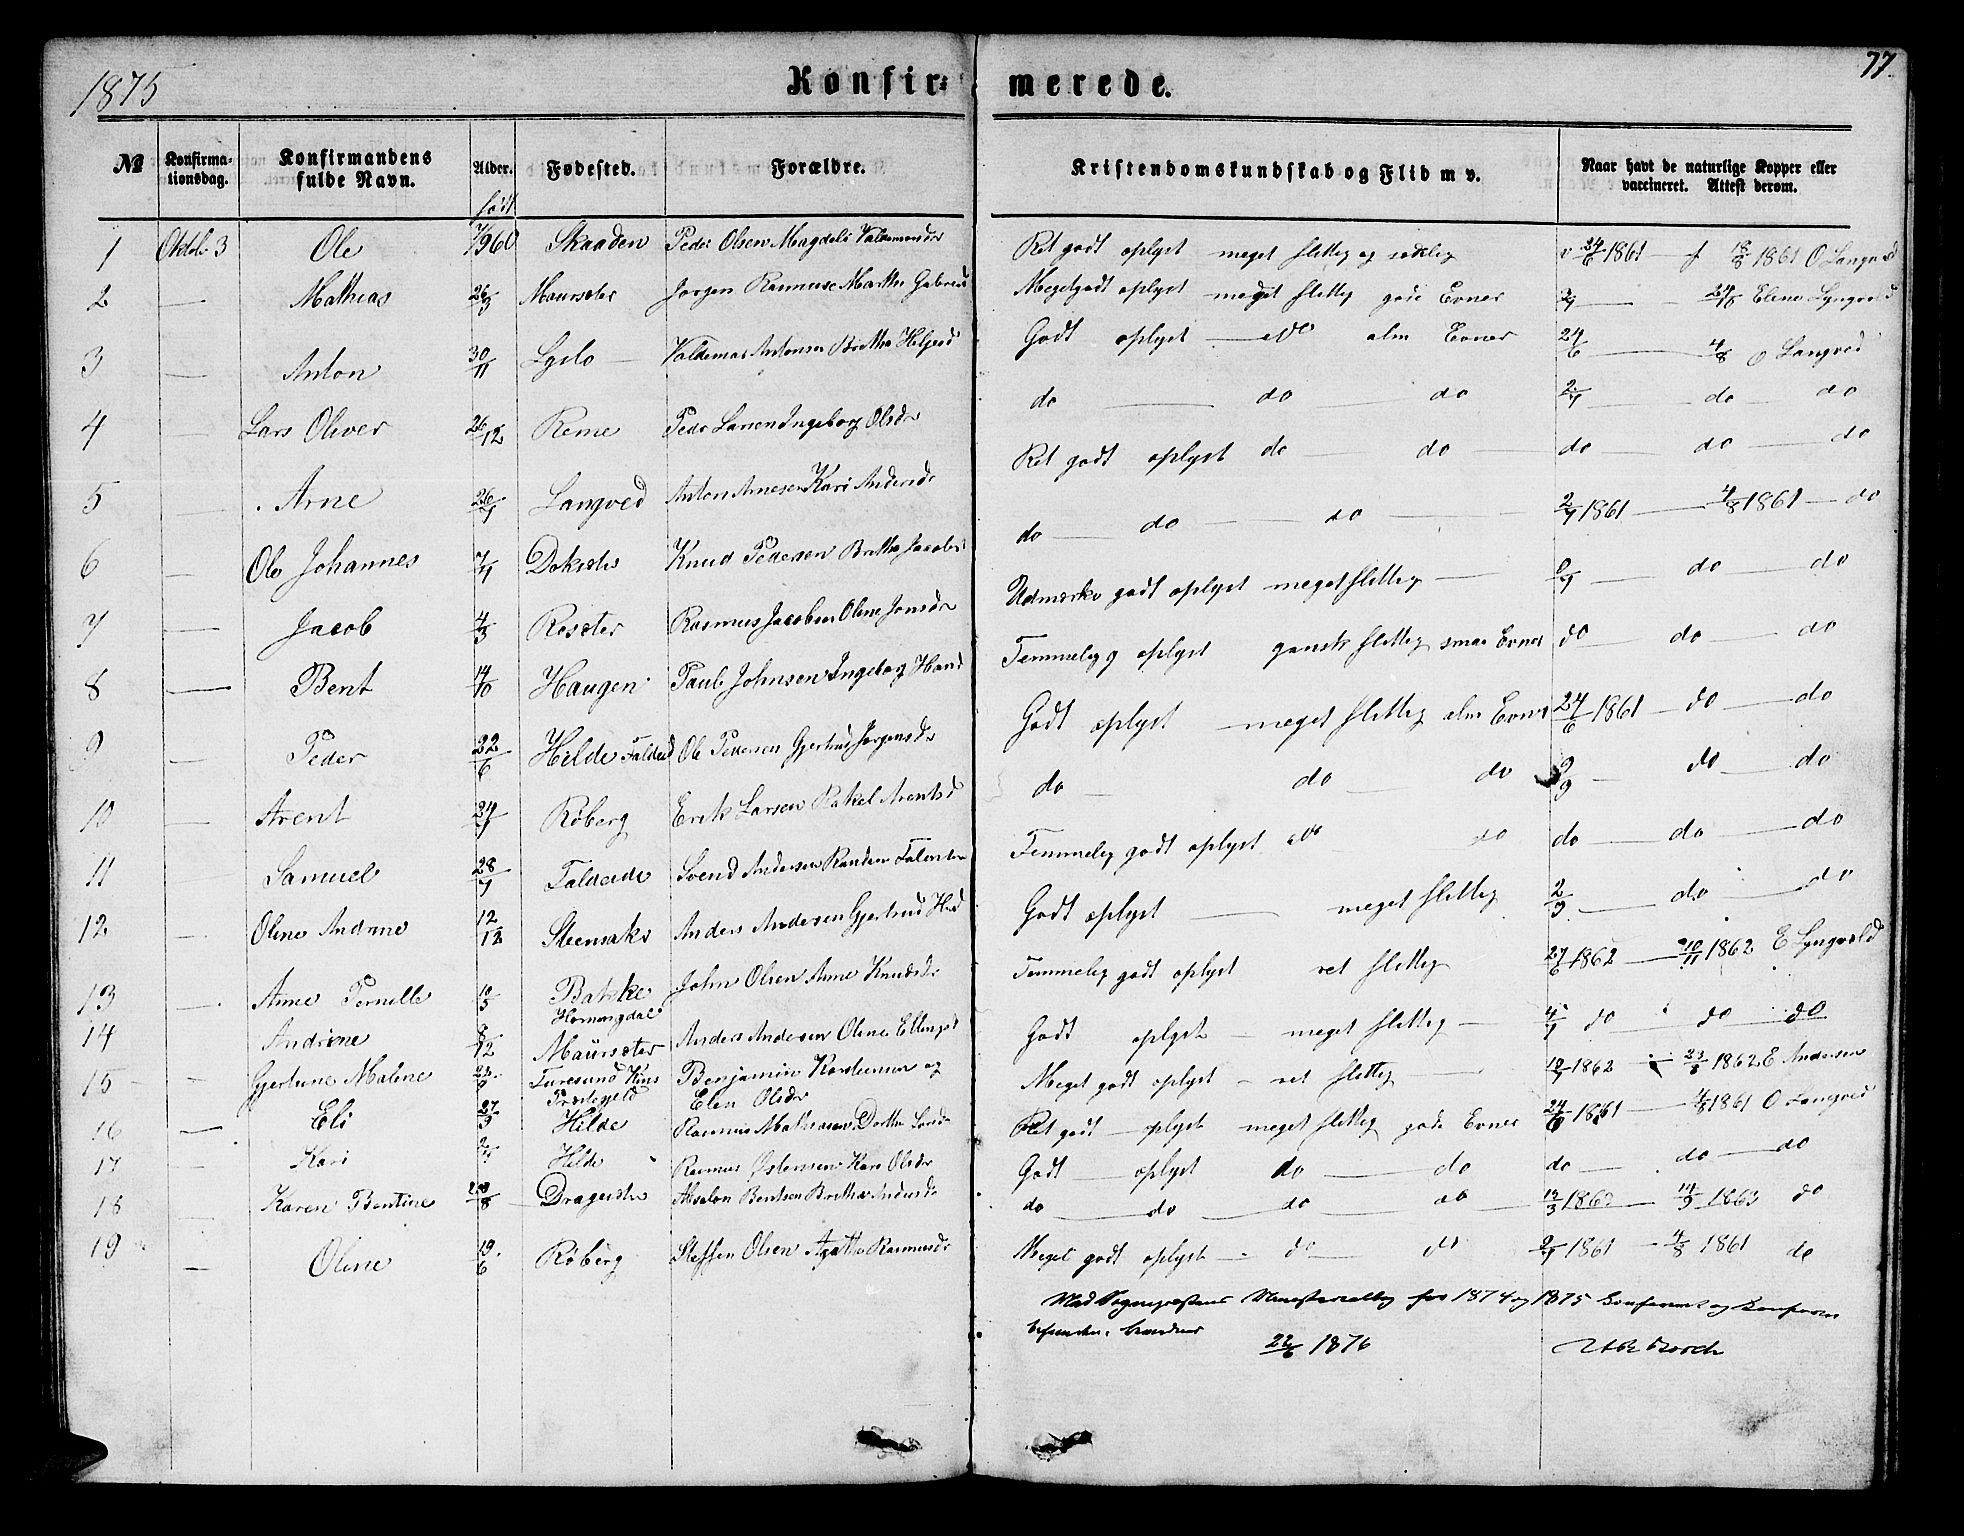 1875 Konfir- merede. 77
№ Konfirma-tionsdag. Konfirmandens fulde Navn. Alder. Fødested. Forældre. Kristendomskundskab og Flid m v. Naar havt de naturlige Kopper eller vaccineret. Attest derom.
født
1 Oktbr 3 Ole Skaaden Peder Olsen Magdeli Ret godt oplyst meget flittig og sædelig 24/6 1861 18/8 1861 O Langved
2 — Mathias 26/3 Maurseter Jørgen Rasmuss Marthe Meget godt oplyst meget flittig gode Evner 2/7 — 24/8 Elene Lyngvold
3 — Anton 30/11 Lyslo Valdemar Antonsen Brethe Helgesd Godt oplyst — do alm Evner 24/6 — 4/8 O Langved
4 — Lars Oliver 26/12 Reme Peder Larsen Ingeborg Olsdr do — do — do 2/7 — do — do
5 — Arne 26/7 Langved Anton Arnesen Kari Andersd Ret godt oplyst do — do do do — do
6 — Ole Johannes 7/7 Knud Pedersen Brethe Jacobs do — do — do — 2/7 1861 — 4/8 1861 — do
7 — Jacob 4/3 Roseter Rasmus Jacobsen Oline Jonsdr Udmærke godt oplyst meget flittig — do — do
8 — Bent Haugen Paul Johnsen Ingeborg Hansd Temmelig oplyst gansk flittig smaa Evner do — do — do
9 — Peder 22/6 Hilde Ole Pedersen Gjertrug Jørgensdr Godt oplyst — meget flittig alm Evner 24/6 1861 — do — do
10 — Arent 24/7 Røberg Erik Larsen Rakel Arentsd do — do — do 9/9 — do — do
11 — Samuel 28/7 Svend Andersen Temmelig godt oplyst do — do do — do — do
12 — Oline Andrine 12/12 Steensaker Anders Andersen Gjertrud Godt oplyst — meget flittig 2/9 — do — do
13 — Anne Pernille Hornengdal John Olsen Anne Knudsdr Temmelig godt oplyst ret flittig 27/6 1862 — 10/11 1862 E Lyngvold
14 Andrine 8/12 Maurseter Anders Andersen Oline Ellingsd Godt oplyst — meget flittig — do do — do
15 — Gjertine Maline Præstegjeld Benjamin og Elen Olsdr Meget godt oplyst — ret flittig — 1862 — 1862 E Andersen
16 — Eli 27/3 Hilde Rasmus Mathiasen Dorthe Ret godt — oplyst meget flittig gode Evner 24/6 1861 — 4/8 1861 O Langved
17 — Kari Hilde Rasmus Østensen Kare Olsdr Godt — oplyst do — do do — do — do
18 — Karen Bentine Absalon Bentsen Brethe Andersd do — do — do — do 1863 — 14/9 1863 do
19 — Oline 19/6 Røberg Steffen Olsen Agathe Rasmusdr Meget godt oplyst — do — do 2/7 1861 — 4/8 1861 do
Med Sognepræstens Ministerialbog for 1874 og 1875 konfereret og
befunden
1876